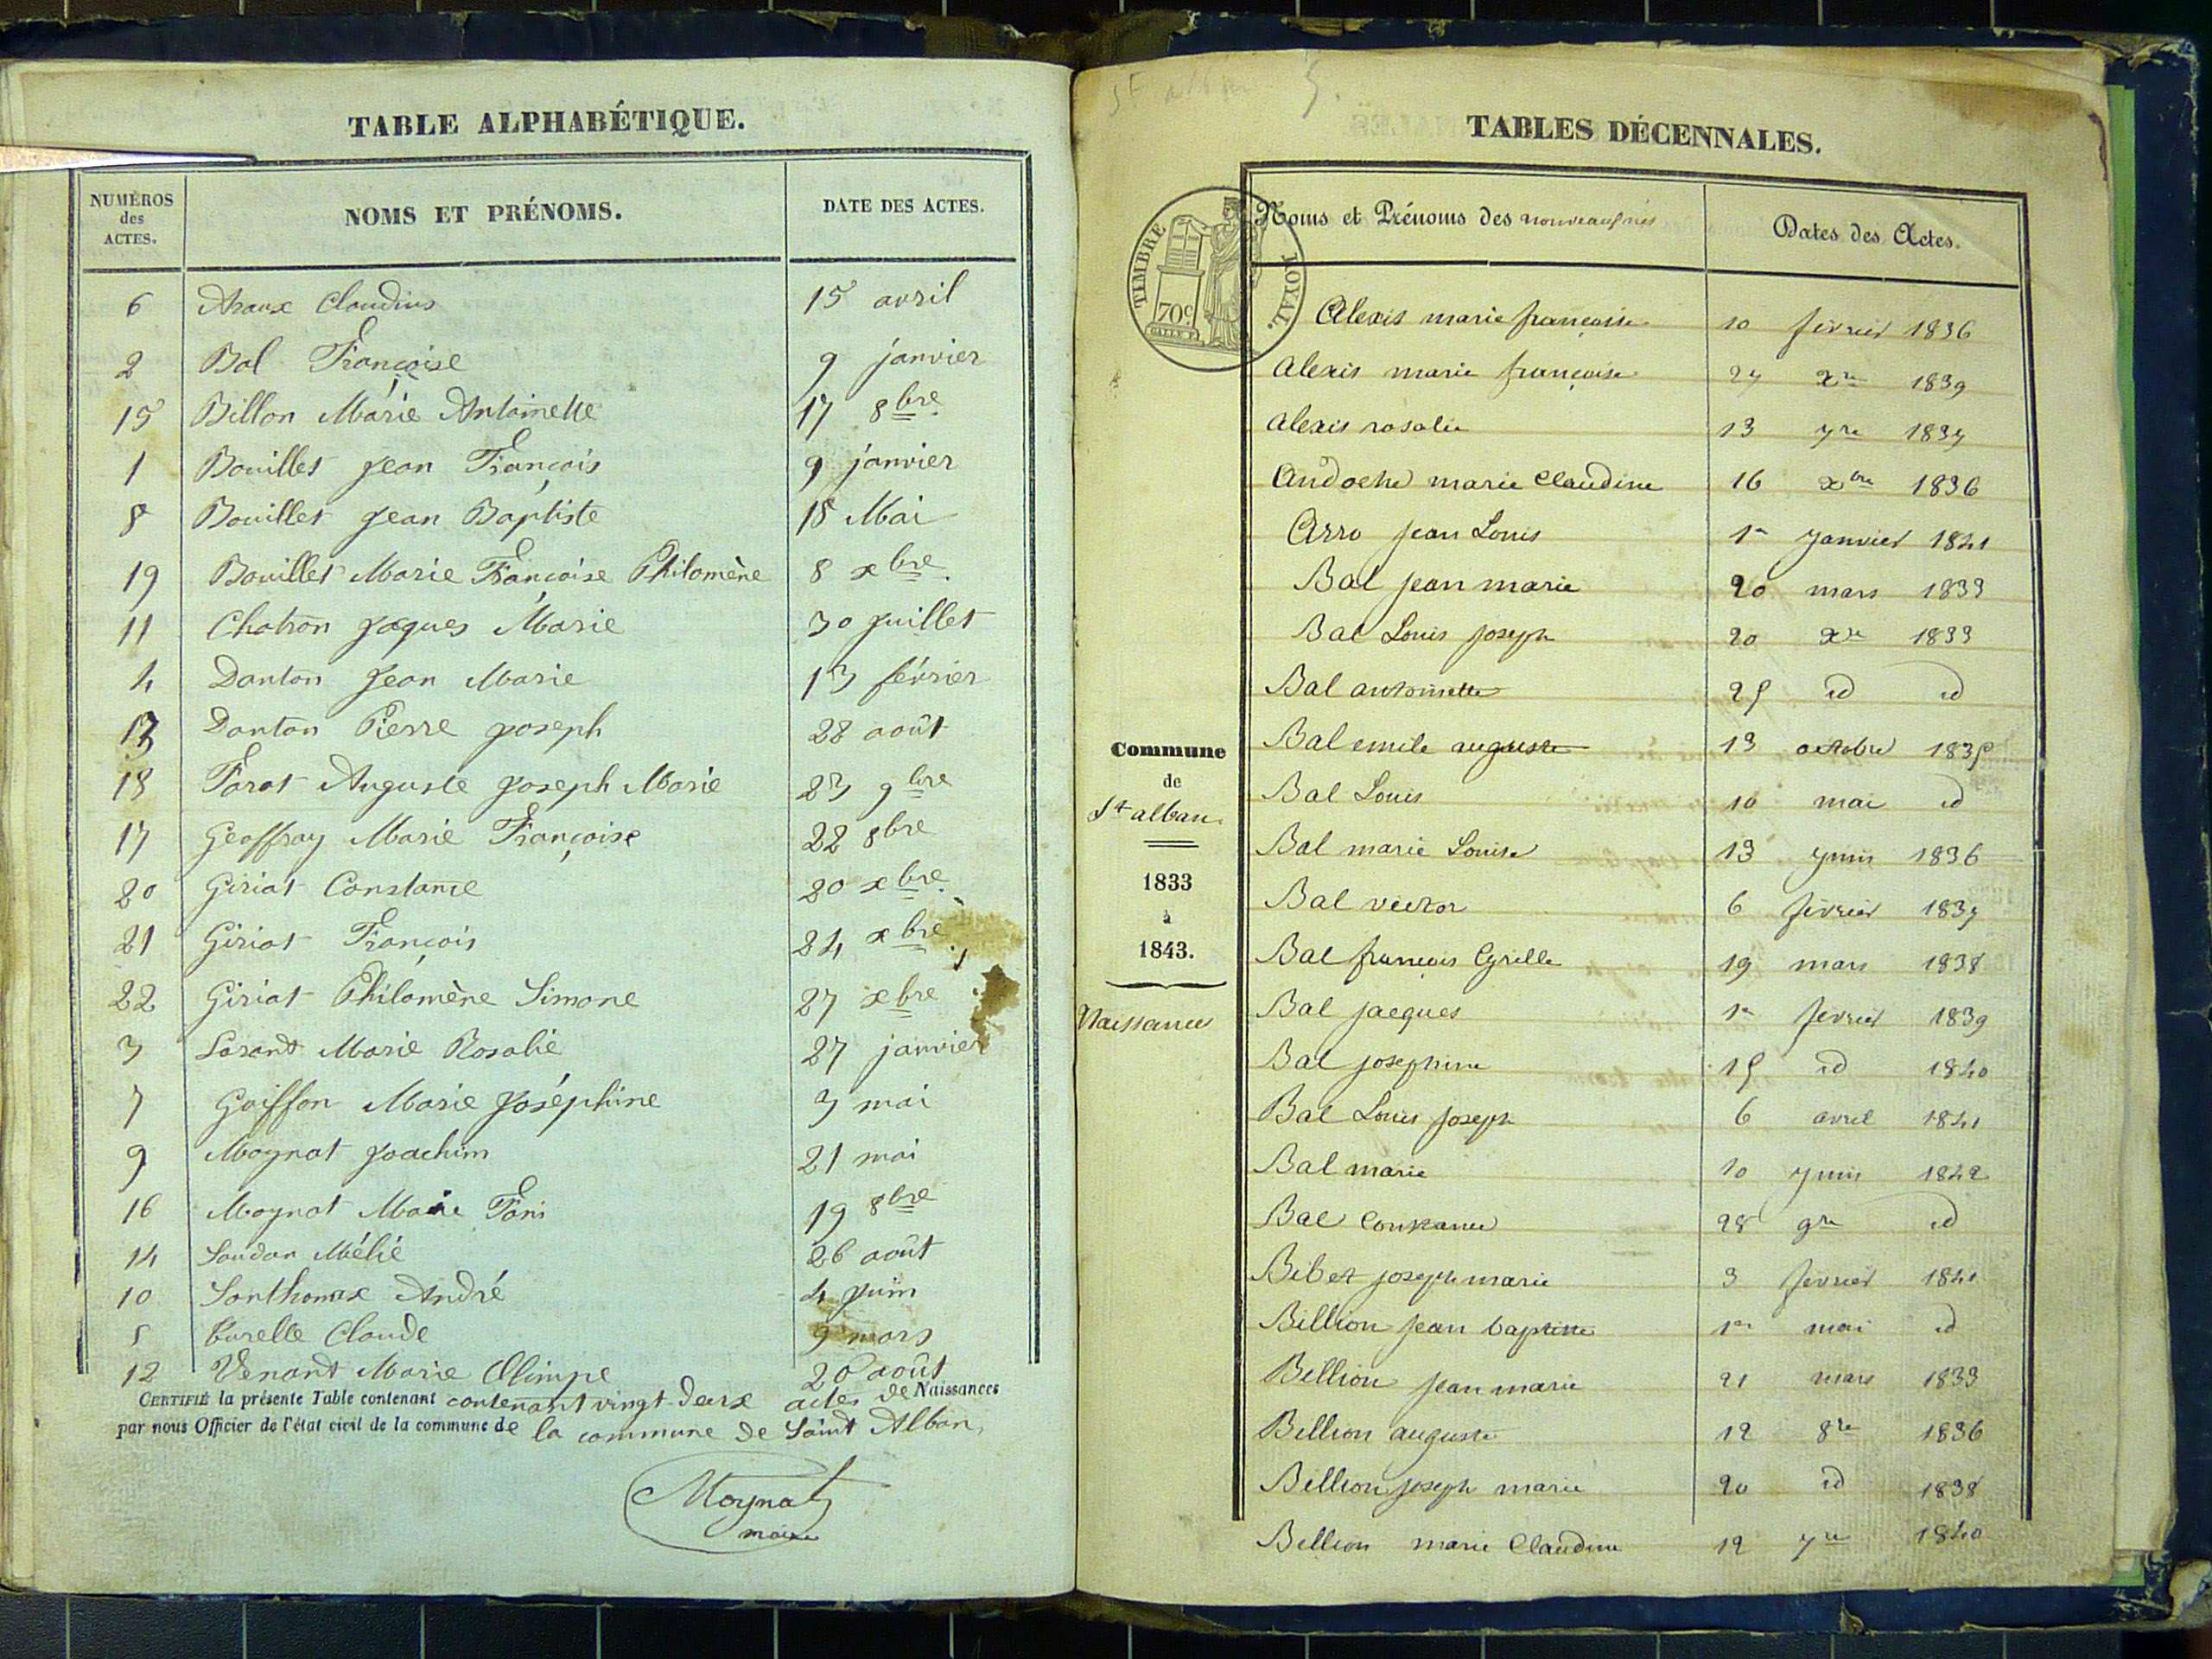 TABLE ALPHABÉTIQUE.
NUMÉROS des ACTES. NOMS ET PRÉNOMS. DATE DES ACTES.
6 Claudius 15 avril
2 Bal Françoise 9 janvier
15 Billon Marie Antoinette 17 8bre
1 Bouillet Jean François 9 janvier
8 Bouillet Jean Baptiste 18 Mai
19 Bouillet Marie Françoise Philomène 8 xbre
11 Chatron Jaques Marie 30 Juillet
4 Danton Jean Marie 13 février
13 Danton Pierre Joseph 28 août
18 Farat Auguste Joseph Marie 23 9bre
17 Geoffray Marie Françoise 22 8bre
20 Giriat Constance 20 xbre
21 Giriat François 24 xbre
22 Giriat Philomène Simone 27 xbre
3 Marie Rosalie 27 janvier
7 Goiffon Marie Joséphine 3 mai
9 Moynat Joachim 21 mai
16 Moynat Marie Fani 19 8bre
14 Soudan Mélie 26 août
10 Sonthonax André 4 Juin
5 Claude 9 mars
12 Venant Marie Olimpe 20 août
CERTIFIÉ la présente Table contenant contenant vingt-deux actes de Naissances
par nous Officier de l'état civil de la commune de de la commune de Saint Alban,
Moynat
maire
TABLES DÉCENNALES.
TIMBRE ROYAL.
70c
Noms et Prénoms des nouveaux nés Dates des Actes.
Alexis marie françoise 10 février 1836
Alexis marie françoise 27 xre 1839
Alexis rosalie 13 7re 1837
Andoche marie Claudine 16 xbre 1836
Arro Jean Louis 1er Janvier 1841
Bal Jean marie 20 mars 1833
Bal Louis Joseph 20 xre 1833
Bal antoinette 25 id id
Bal emile auguste 13 octobre 1835
Bal Louis 10 mai id
Bal marie Louise 13 Juin 1836
Bal victor 6 février 1837
Bal françois Cyrille 19 mars 1838
Bal Jacques 1er février 1839
Bal Josephine 15 id 1840
Bal Louis Joseph 6 avril 1841
Bal marie 10 Juin 1842
Bal Constance 28 9re id
Bibet Joseph marie 3 février 1841
Billion Jean baptiste 1er mai id
Billion Jean marie 21 mars 1833
Billion auguste 12 8re 1836
Billion Joseph marie 20 id 1838
Billion marie Claudine 12 7re 1840
Commune
de
St alban
1833
à
1843.
Naissances